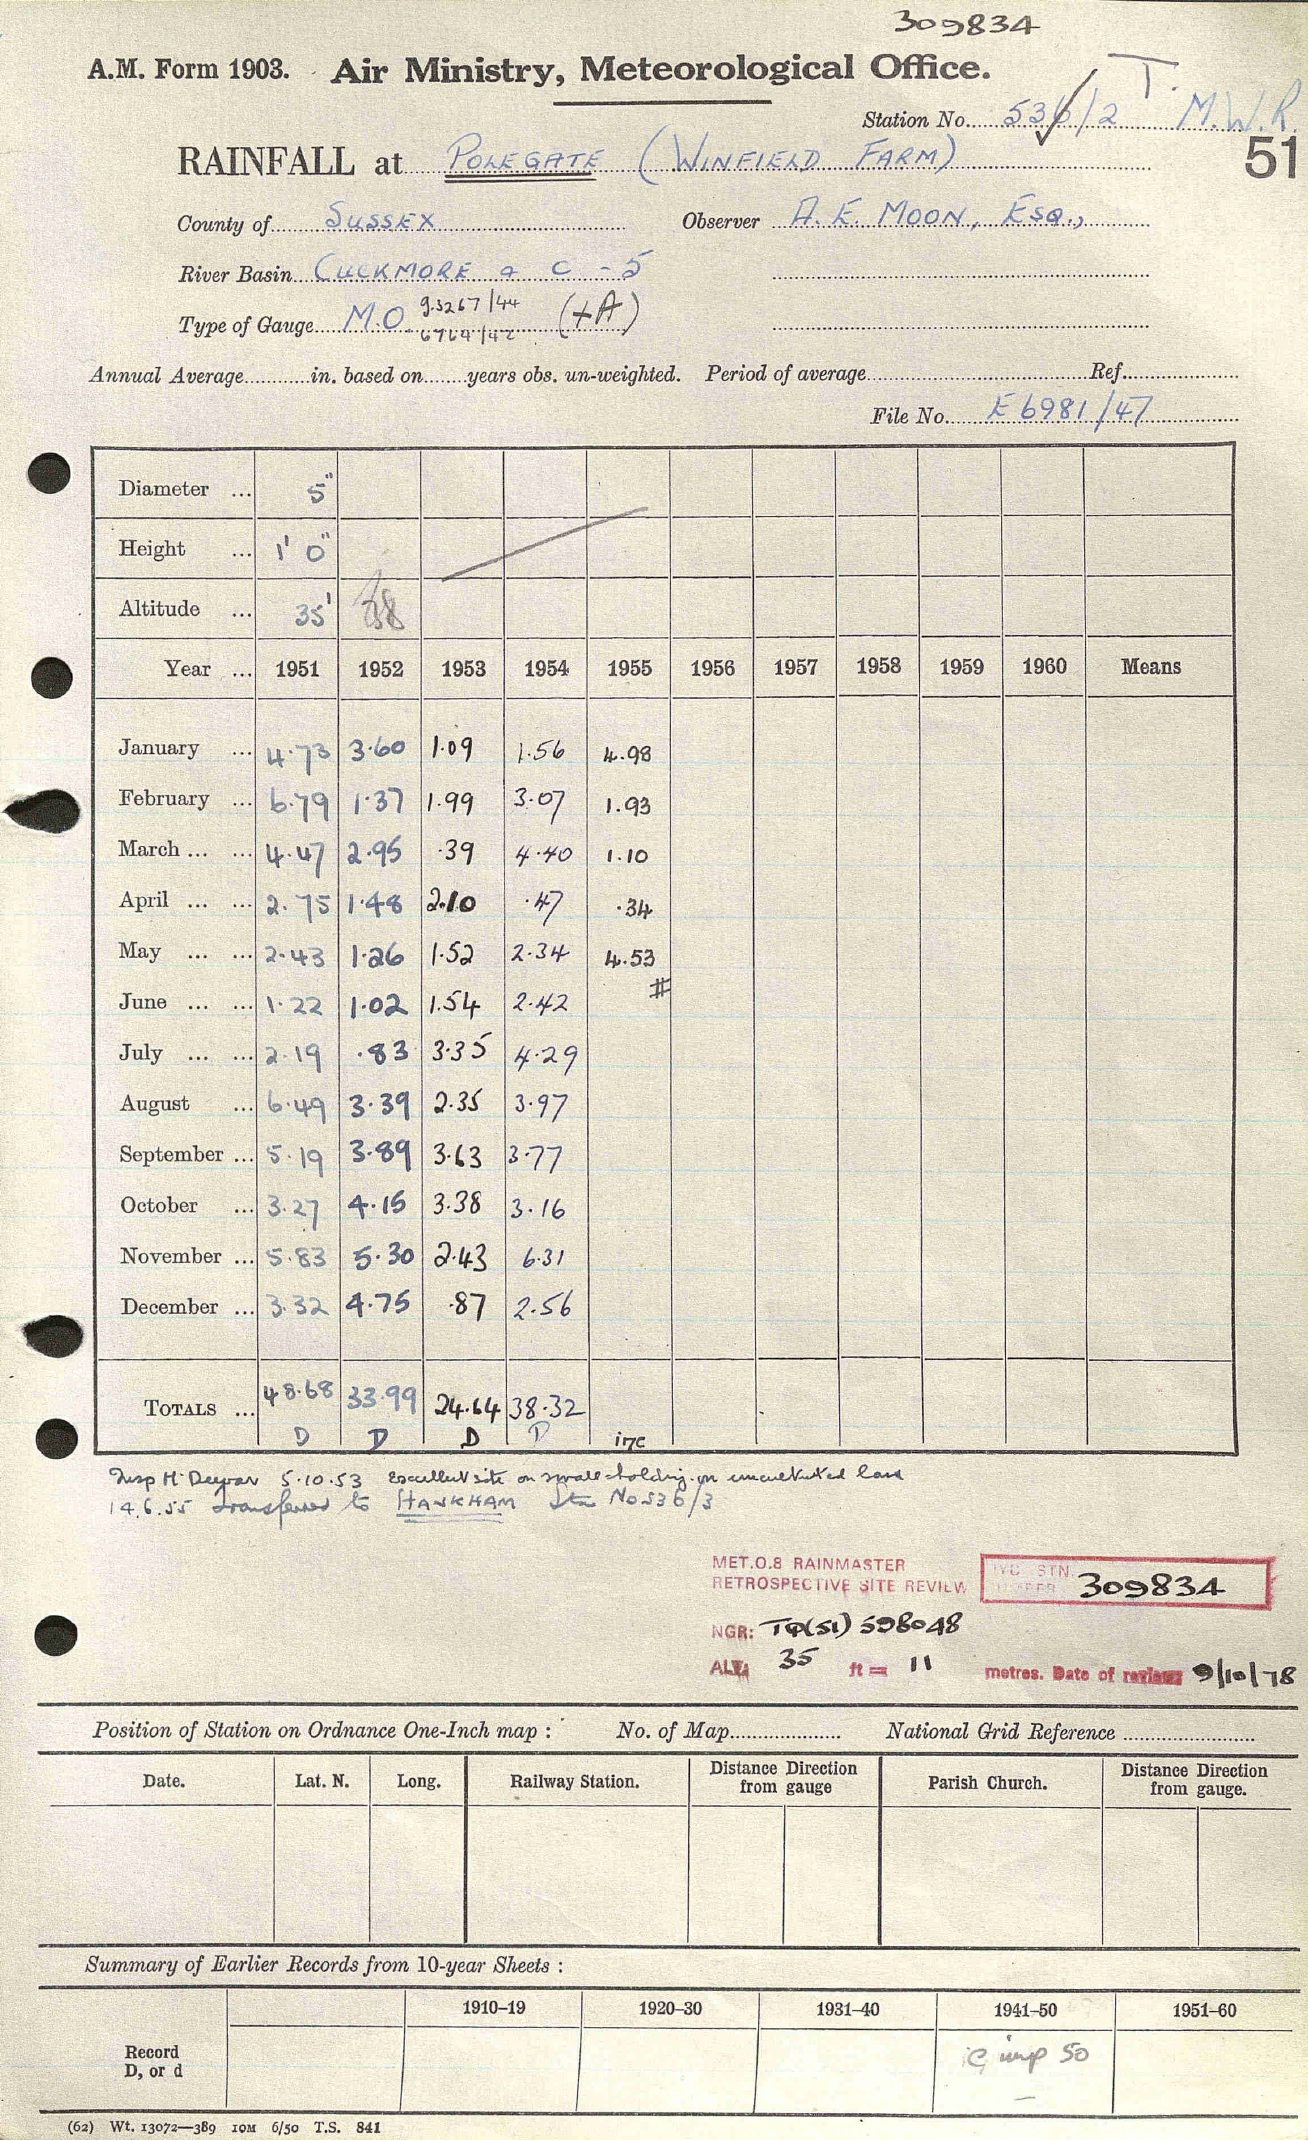 309834
A.M. Form 1903. Air Ministry, Meteorological Office.
T.
Station No. 536/2 M.W.R.
51
RAINFALL at POLEGATE (WINFIELD FARM)
County of SUSSEX Observer A. E. MOON, ESQ.,
River Basin CUCKMORE & C - 5
Type of Gauge M.O. 9.3267/44 (+A)
6764/42
Annual Average in. based on years obs. un-weighted. Period of average Ref.
File No. E6981/47
Diameter ... 5"
Height ... 1' 0"
Altitude ... 35' 38
Year ... 1951 1952 1953 1954 1955 1956 1957 1958 1959 1960 Means
January ... 4.73 3.60 1.09 1.56 4.98
February ... 6.79 1.37 1.99 3.07 1.93
March ... ... 4.47 2.95 .39 4.40 1.10
April ... ... 2.75 1.48 2.10 .47 .34
May ... ... 2.43 1.26 1.52 2.34 4.53
June ... ... 1.22 1.02 1.54 2.42 #
July ... ... 2.19 .83 3.35 4.29
August ... 6.49 3.39 2.35 3.97
September ... 5.19 3.89 3.63 3.77
October ... 3.27 4.15 3.38 3.16
November ... 5.83 5.30 2.43 6.31
December ... 3.32 4.75 .87 2.56
TOTALS ... 48.68 33.99 24.64 38.32
D D D D inc
Insp Mr Dewar 5.10.53 Excellent site on small-holding on uncultivated land
14.6.55 transferred to HANKHAM Stn No 536/3
MET.O.8 RAINMASTER
RETROSPECTIVE SITE REVIEW
STN. 309834
NGR: TQ(51) 598048
ALT. 35 ft = 11 metres. Date of review 9/10/78
Position of Station on Ordnance One-Inch map : No. of Map National Grid Reference
Date. Lat. N. Long. Railway Station. Distance Direction from gauge Parish Church. Distance Direction from gauge.
Summary of Earlier Records from 10-year Sheets :
1910–19 1920–30 1931–40 1941–50 1951–60
Record
D, or d
imp 50
(62) Wt. 13072—389 10M 6/50 T.S. 841